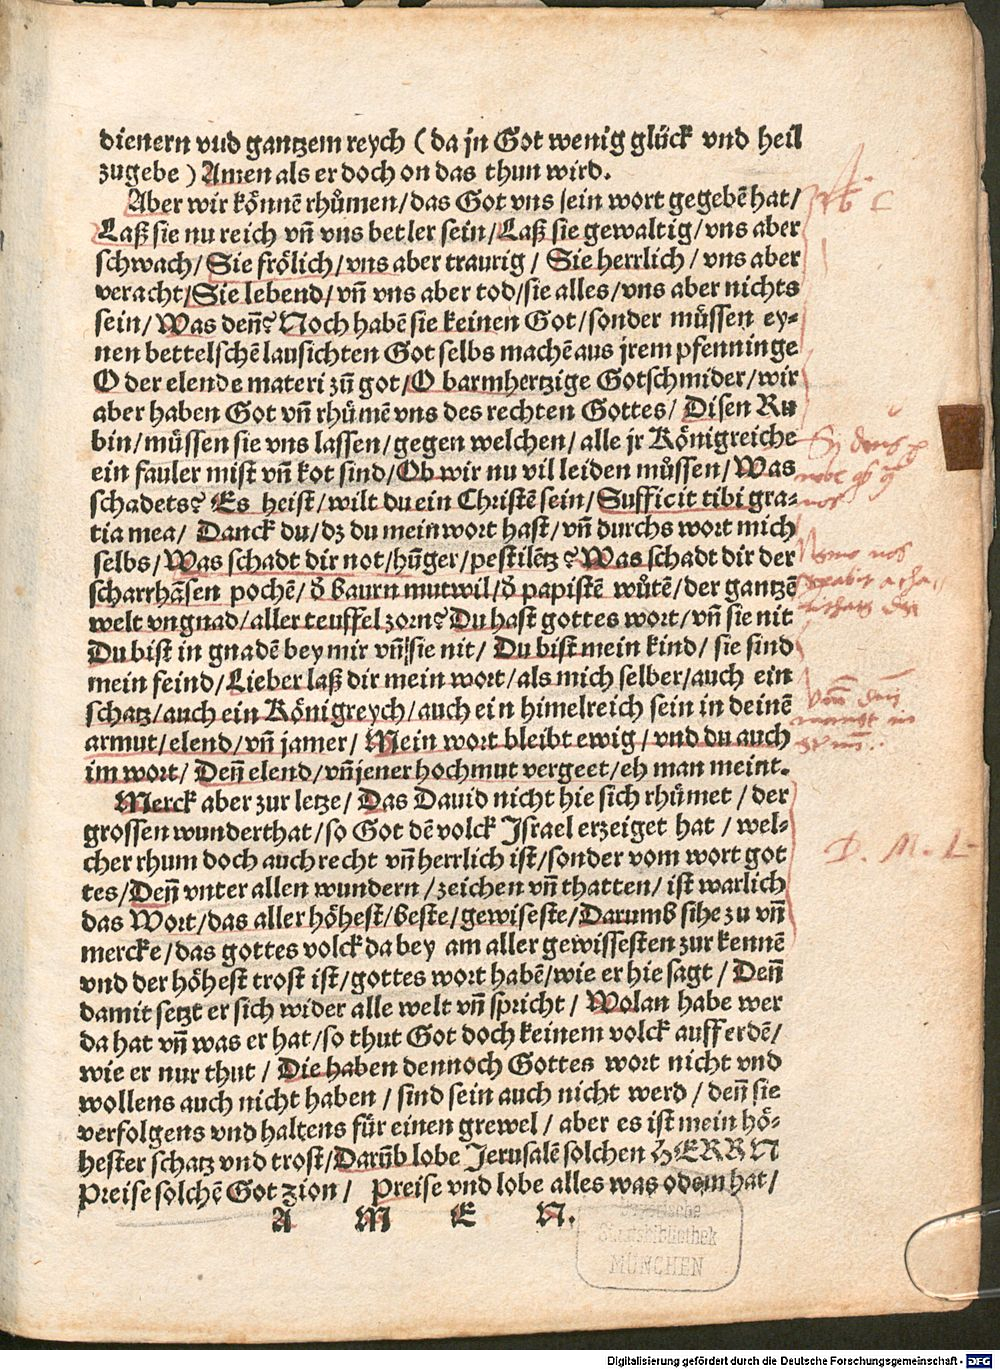 dienern vud gantzem reych ( da jn Got wenig glück vnd heil
zugebe ) Amen als er doch on das thun wird.
Aber wir könnē rhůmen/das Got vns sein wort gegebē hat/
Laß sie nu reich vn̄ vns betler sein/Laß sie gewaltig/vns aber
schwach/Sie frölich/vns aber traurig / Sie herrlich / vns aber
veracht/Sie lebend/vn̄ vns aber tod/sie alles/vns aber nichts
sein/Was den̄? Noch habē sie keinen Got/sonder müssen ey-
nen bettelschē lausichten Got selbs machē aus jrem pfenninge
O der elende materi zū got/O barmhertzige Gotschmider/wir
aber haben Got vn̄ rhůmē vns des rechten Gottes/ Disen Ru
bin/müssen sie vns lassen/gegen welchen/alle jr Königreiche
ein fauler mist vn̄ kot sind/Ob wir nu vil leiden můssen/Was
schadets? Es heist/wilt du ein Christē sein/Sufficit tibi gra-
tia mea/ Danck du/dz du mein wort hast/vn̄ durchs wort mich
selbs/Was schadt dir not/hūger/pestilētz? Was schadt dir der
scharrhāsen pochē/d̄ baurn mutwil/d̄ papistē wůtē/der gantzē
welt vngnad/aller teuffel zorn? Du hast gottes wort/vn̄ sie nit
Du bist in gnadē bey mir vn̄ sie nit/ Du bist mein kind/ sie sind
mein feind/Lieber laß dir mein wort/als mich selber/auch ein
schatz/auch ein Königreych/auch ein himelreich sein in deinē
armut/elend/vn̄ jamer/Mein wort bleibt ewig/vnd du auch
im wort/ Den̄ elend/vn̄ jener hochmut vergeet/eh man meint.
Merck aber zur letze/ Das Dauid nicht hie sich rhümet / der
grossen wunderthat/so Got dē volck Israel erzeiget hat / wel-
cher rhum doch auch recht vn̄ herrlich ist/sonder vom wort got
tes/Den̄ vnter allen wundern /zeichen vn̄ thatten/ ist warlich
das Wort/das aller höhest/beste/gewiseste/Darumb sihe zu vn̄
mercke/das gottes volck da bey am aller gewissesten zur kennē
vnd der höhest trost ist/gottes wort habē/wie er hie sagt / Den̄
damit setzt er sich wider alle welt vn̄ spricht / Wolan habe wer
da hat vn̄ was er hat/so thut Got doch keinem volck auff erdē/
wie er nur thut / Die haben dennoch Gottes wort nicht vnd
wollens auch nicht haben / sind sein auch nicht werd / den̄ sie
verfolgens vnd haltens für einen grewel / aber es ist mein hö-
hester schatz vnd trost/Darūb lobe Jerusalē solchen HERRN
Preise solchē Got Zion / Preise vnd lobe alles was odem hat/
A M E N.
D. M. L.
Bayerische
Staatsbibliothek
MÜNCHEN
Digitalisierung gefördert durch die Deutsche Forschungsgemeinschaft - DFG